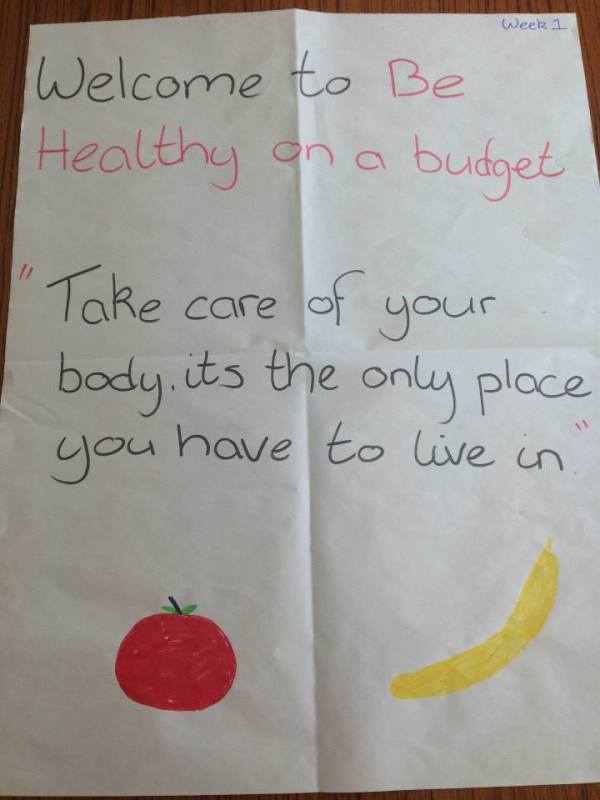 Week 1
Welcome to Be
Healthy on a budget
"Take care of your
body. its the only place
you have to live in."